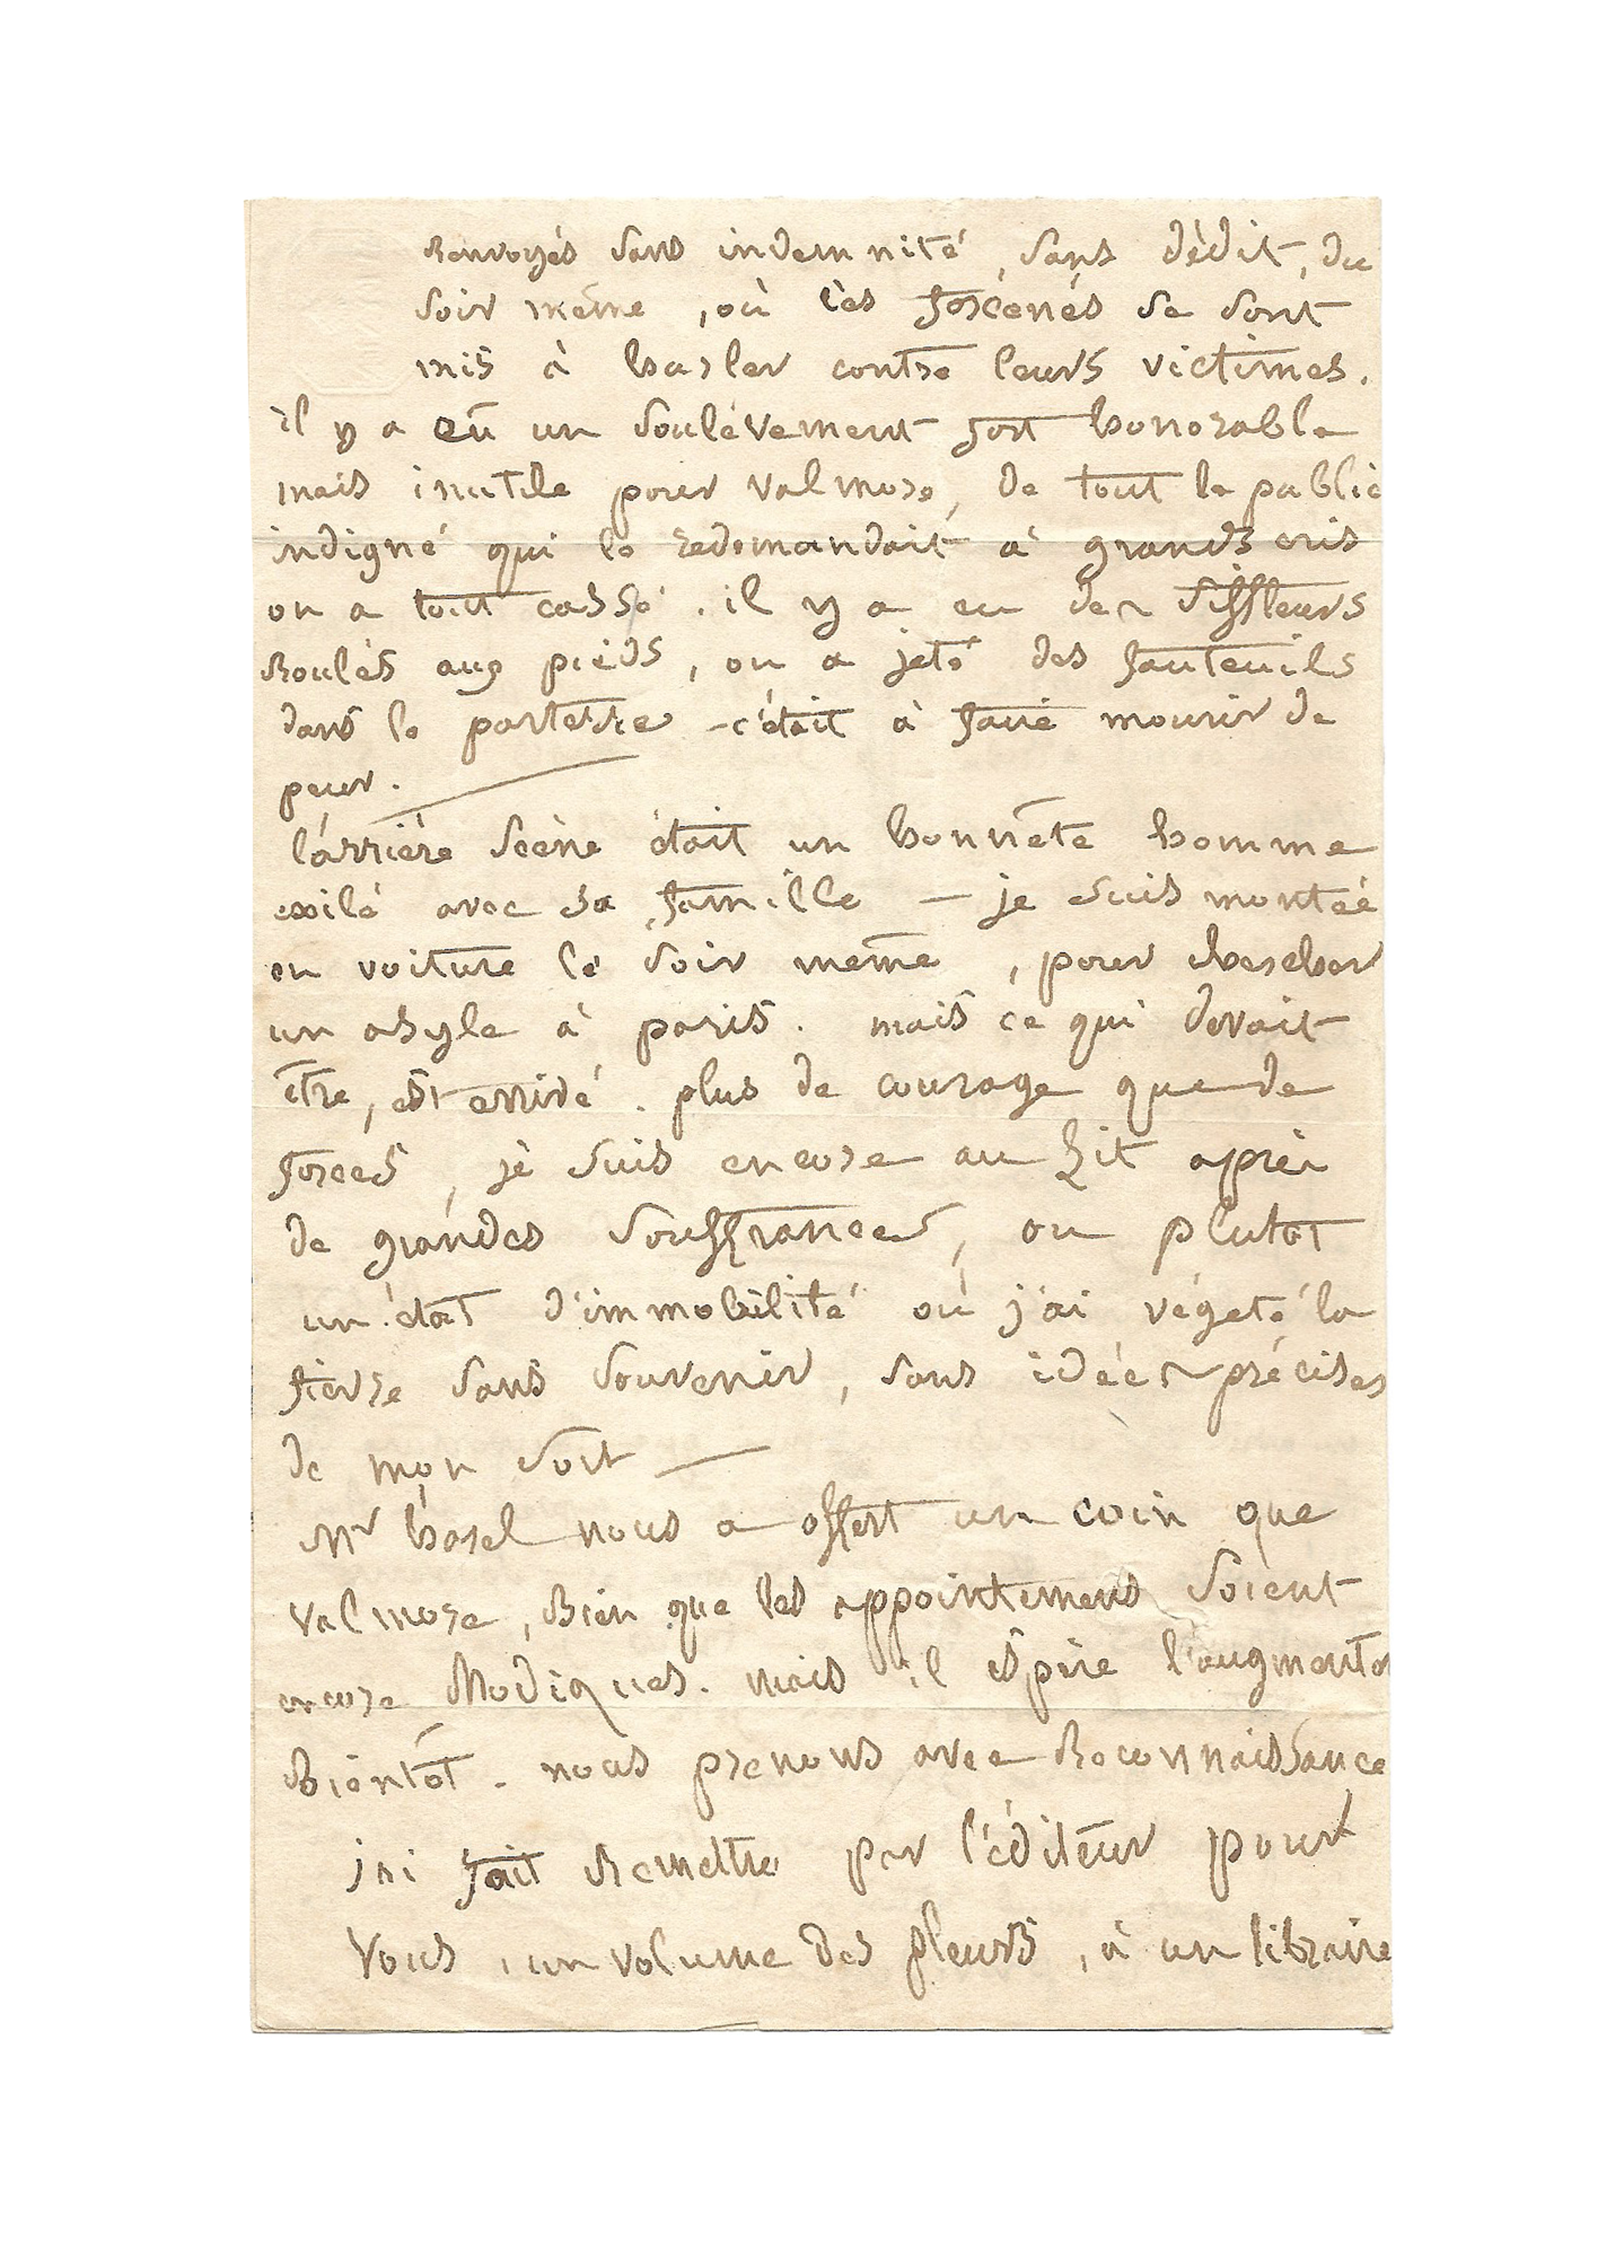 Renvoyés sans indemnité, sans dédit, du
soir même, où les forcenés se sont
mis à hurler contre leurs victimes.
il y a eû un soulèvement fort honorable
mais inutile pour valmore, de tout le public
indigné qui le redemandait à grands cris
on a tout cassé. il y a eu des siffleurs
Roulés aux pieds, on a jeté des fauteuils
dans le parterre – c'était à faire mourir de
peur.
l'arrière scène était un honnête homme
exilé avec sa famille — je suis montée
en voiture le soir même, pour chercher
un asyle à paris. mais ce qui devait
être, est arrivé. plus de courage que de
forces, je suis encore au Lit après
de grandes souffrances, ou plutot
un état d'immobilité où j'ai végeté la
fievre sans souvenir, sans idées précises
de mon sort —
Mr harel nous a offert un coin que
valmore, Bien que les appointemens soient
encore Modiques. mais il espère l'augmenter
Bientôt. nous prenons avec Reconnaissance
j'ai fait Remettre par l'éditeur pour
Vous, un volume des pleurs, à un libraire